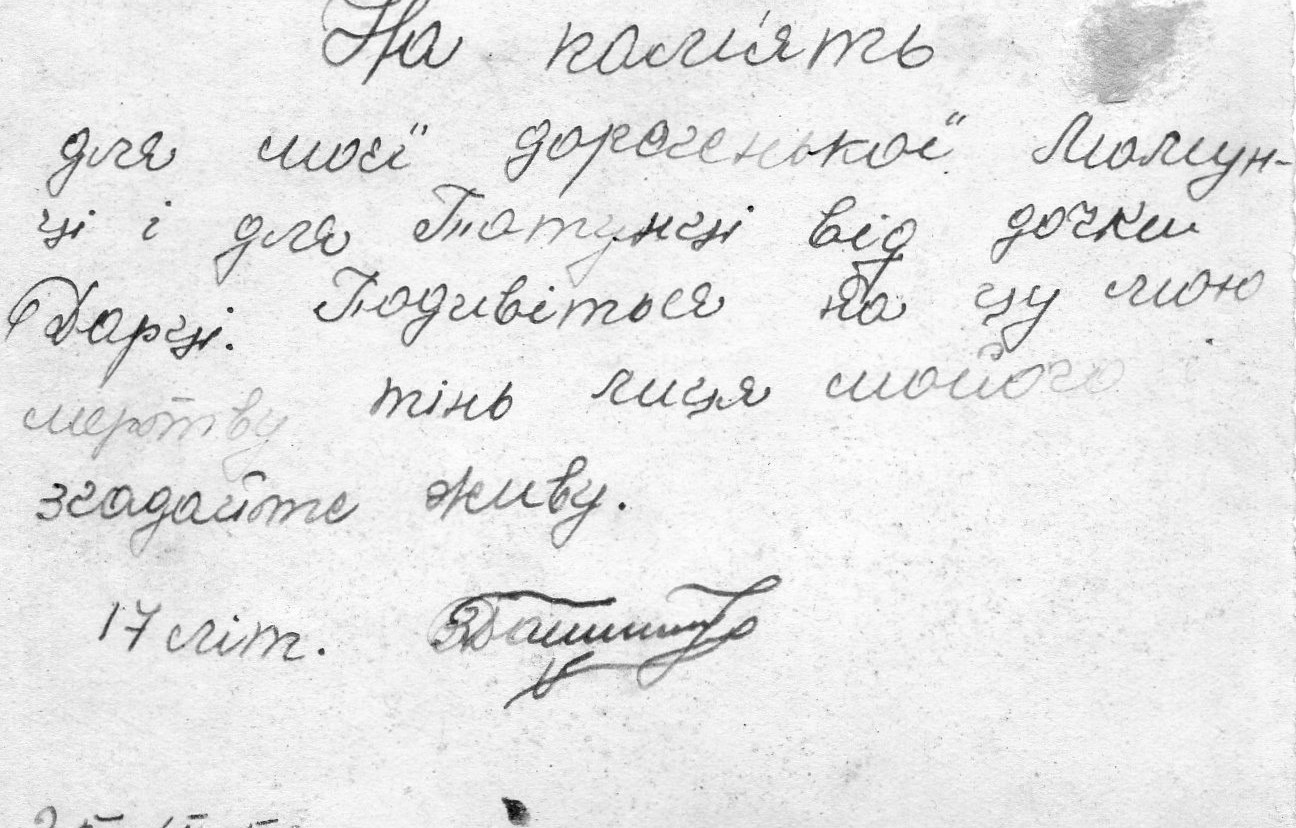 На пам'ять
для моєї дорогенької Мамун-
ці і для Татунці від дочки
Дарці. Подивіться на цу мою
мертву тінь лиця мойого
згадайте живу.
17 літ.